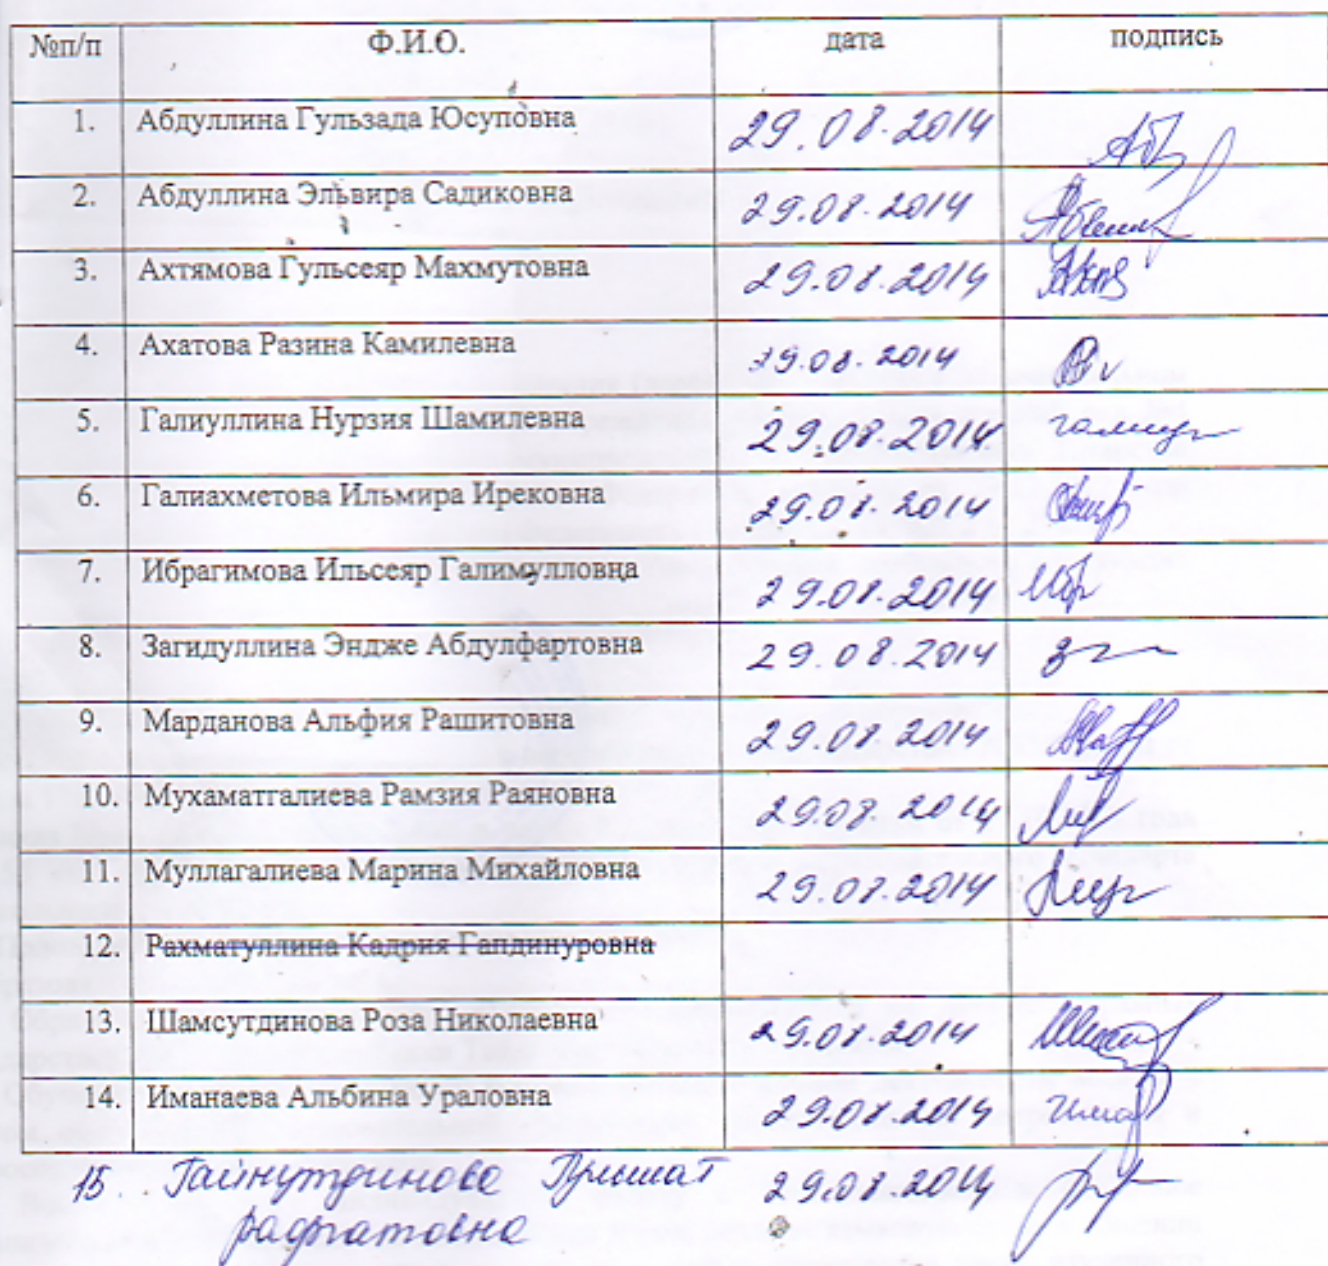 №п/п Ф.И.О. дата подпись
1. Абдуллина Гульзада Юсуповна 29.08.2014
2. Абдуллина Эльвира Садиковна 29.08.2014
3. Ахтямова Гульсеяр Махмутовна 29.08.2014
4. Ахатова Разина Камилевна 29.08.2014
5. Галиуллина Нурзия Шамилевна 29.08.2014
6. Галиахметова Ильмира Ирековна 29.08.2014
7. Ибрагимова Ильсеяр Галимулловна 29.08.2014
8. Загидуллина Эндже Абдулфартовна 29.08.2014
9. Марданова Альфия Рашитовна 29.08.2014
10. Мухаматгалиева Рамзия Раяновна 29.08.2014
11. Муллагалиева Марина Михайловна 29.08.2014
12. Рахматуллина Кадрия Гапдинуровна
13. Шамсутдинова Роза Николаевна 29.08.2014
14. Иманаева Альбина Ураловна 29.08.2014
15. Гайнутдинова Гульшат 29.08.2014